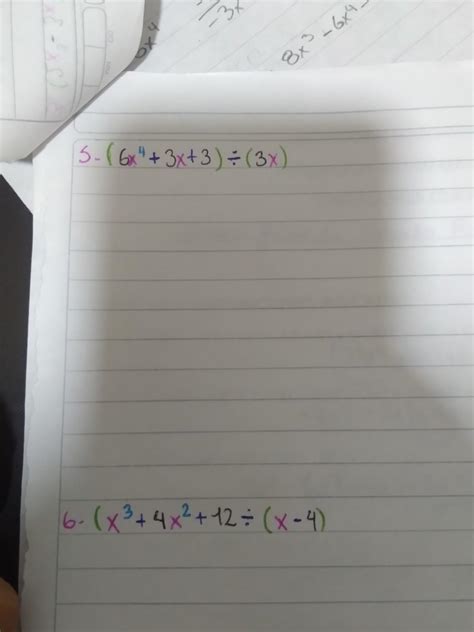 -3x
8x³-6x⁴-
5-(6x⁴+3x+3)÷(3x)
6-(x³+4x²+12÷(x-4)